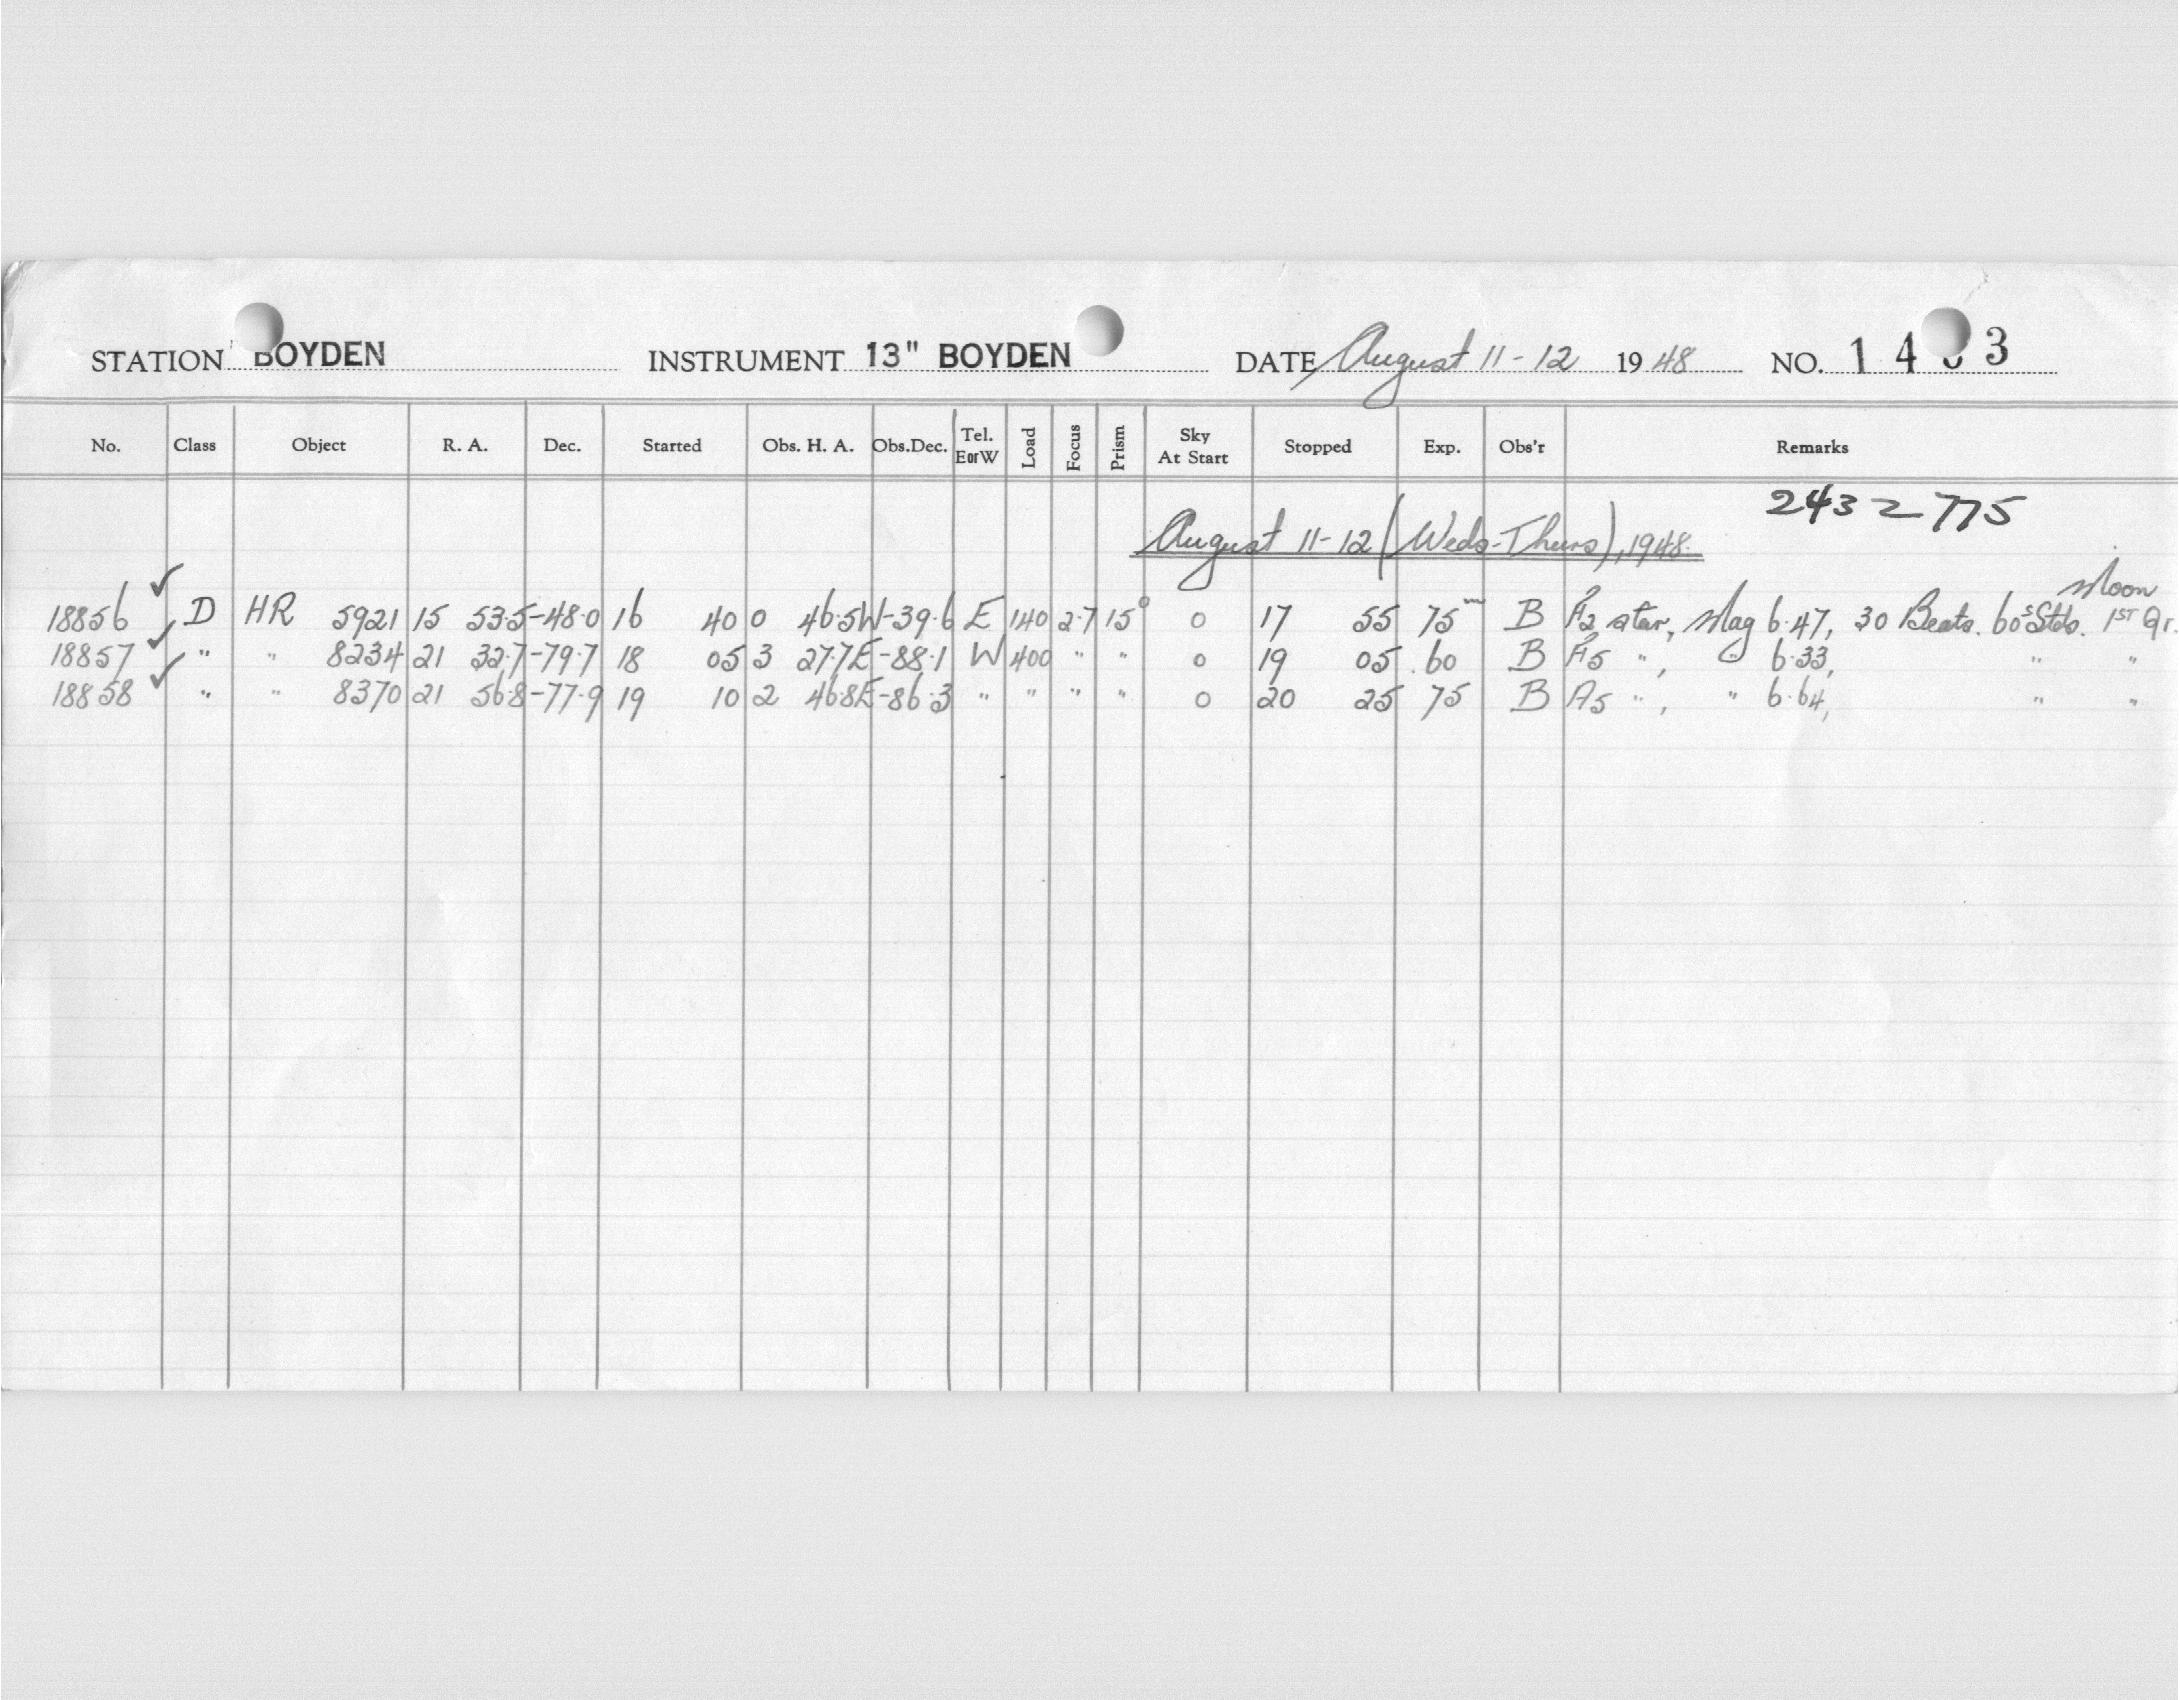 STATION BOYDEN INSTRUMENT 13" BOYDEN DATE August 11-12 1948 NO. 14 3
No. Class Object R. A. Dec. Started Obs. H. A. Obs.Dec. Tel. EorW Load Focus Prism Sky At Start Stopped Exp. Obs'r Remarks
2432775
August 11-12 (Weds-Thurs), 1948.
Moon
18856 ✓ D HR 5921 15 53.5 -48.0 16 40 0 46.5W -39.6 E 140 2.7 15° 0 17 55 75m B F2 star, Mag 6.47, 30 Beats. 60s Stds. 1ST Qr.
18857 ✓ " " 8234 21 32.7 -79.7 18 05 3 27.7E -88.1 W 400 " " 0 19 05 60 B A5 ", " 6.33, " "
18858 ✓ " " 8370 21 56.8 -77.9 19 10 2 46.8E -86.3 " " " " 0 20 25 75 B A5 ", " 6.64, " "